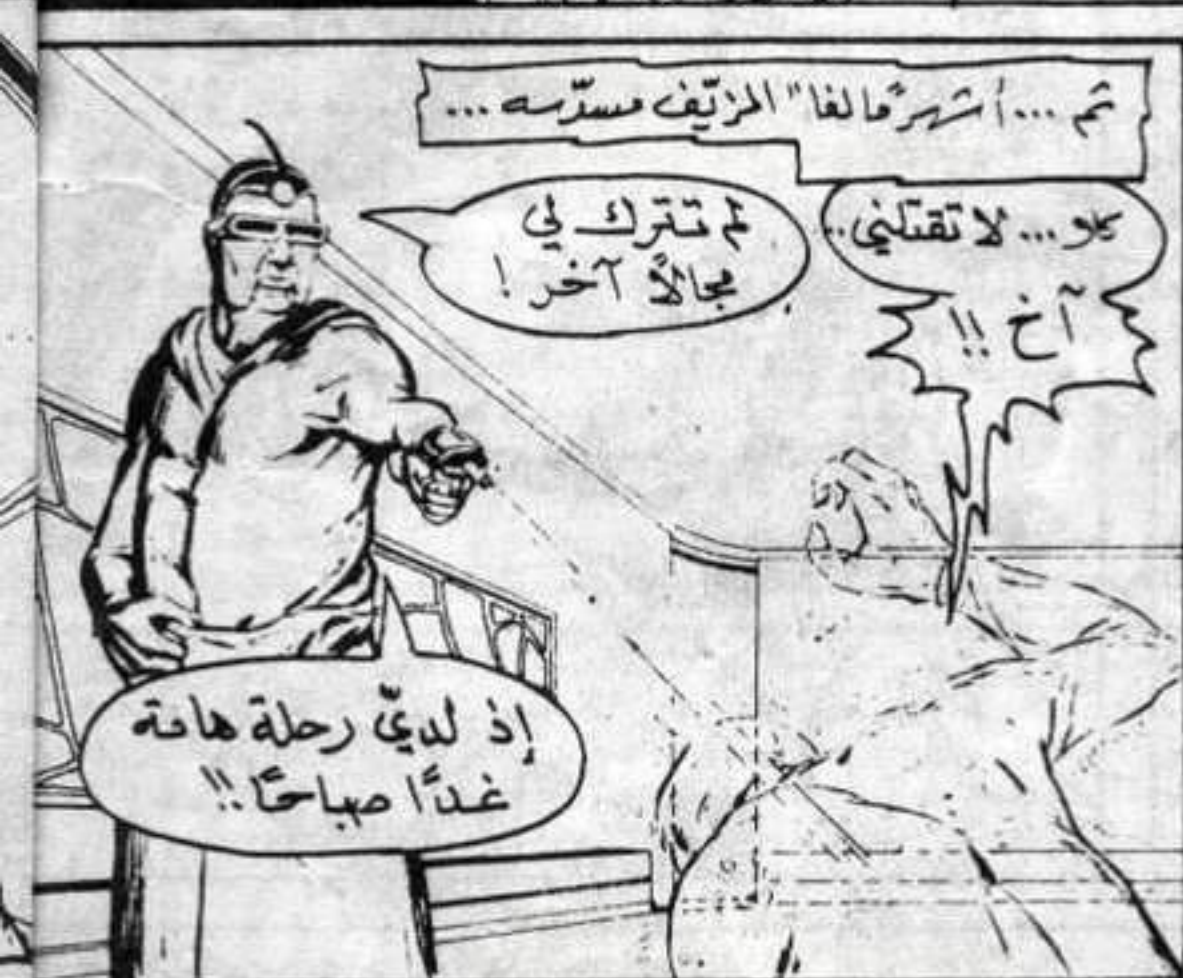 ثم ... أشهر "مالفا" المزيّف مسدّسه ...
كلا ... لا تقتلني..
آخ !!
لم تترك لي
مجالاً آخر !
إذ لديّ رحلة هامة
غدًا صباحًا !!